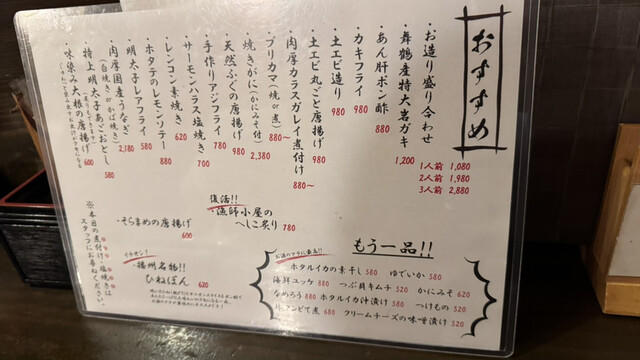 おすすめ
・お造り盛り合わせ
1人前 1,080
2人前 1,980
3人前 2,880
・舞鶴産特大岩ガキ 1,200
・あん肝ポン酢 880
・カキフライ 980
・土エビ造り 980
・土エビ丸ごと唐揚げ 980
・肉厚カラスガレイ煮付け 880〜
・ブリカマ(焼 or 煮) 880〜
・焼きがに(かにみそ付) 2,380
・天然ふぐの唐揚げ 980
・手作りアジフライ 780
・サーモンハラス塩焼き 700
・レンコン素焼き 620
・ホタテのレモンソテー 880
・明太子レアフライ 580
・肉厚国産うなぎ 2,180
(白焼き or かば焼き)
・特上明太子あごおとし 580
・味染み大根の唐揚げ 600
復活!!
・漁師小屋のへしこ炙り 780
・そらまめの唐揚げ 600
・播州名物!!
ひねぽん 620
※本日の煮付け・塩焼きは
スタッフにお尋ねください。
もう一品!!
ホタルイカの素干し 580 ゆでいか 580
海鮮ユッケ 580 つぶ貝キムチ 520 かにみそ 620
なめろう 880 ホタルイカ沖漬け 580 つけもの 520
煮 680 クリームチーズの味噌漬け 520